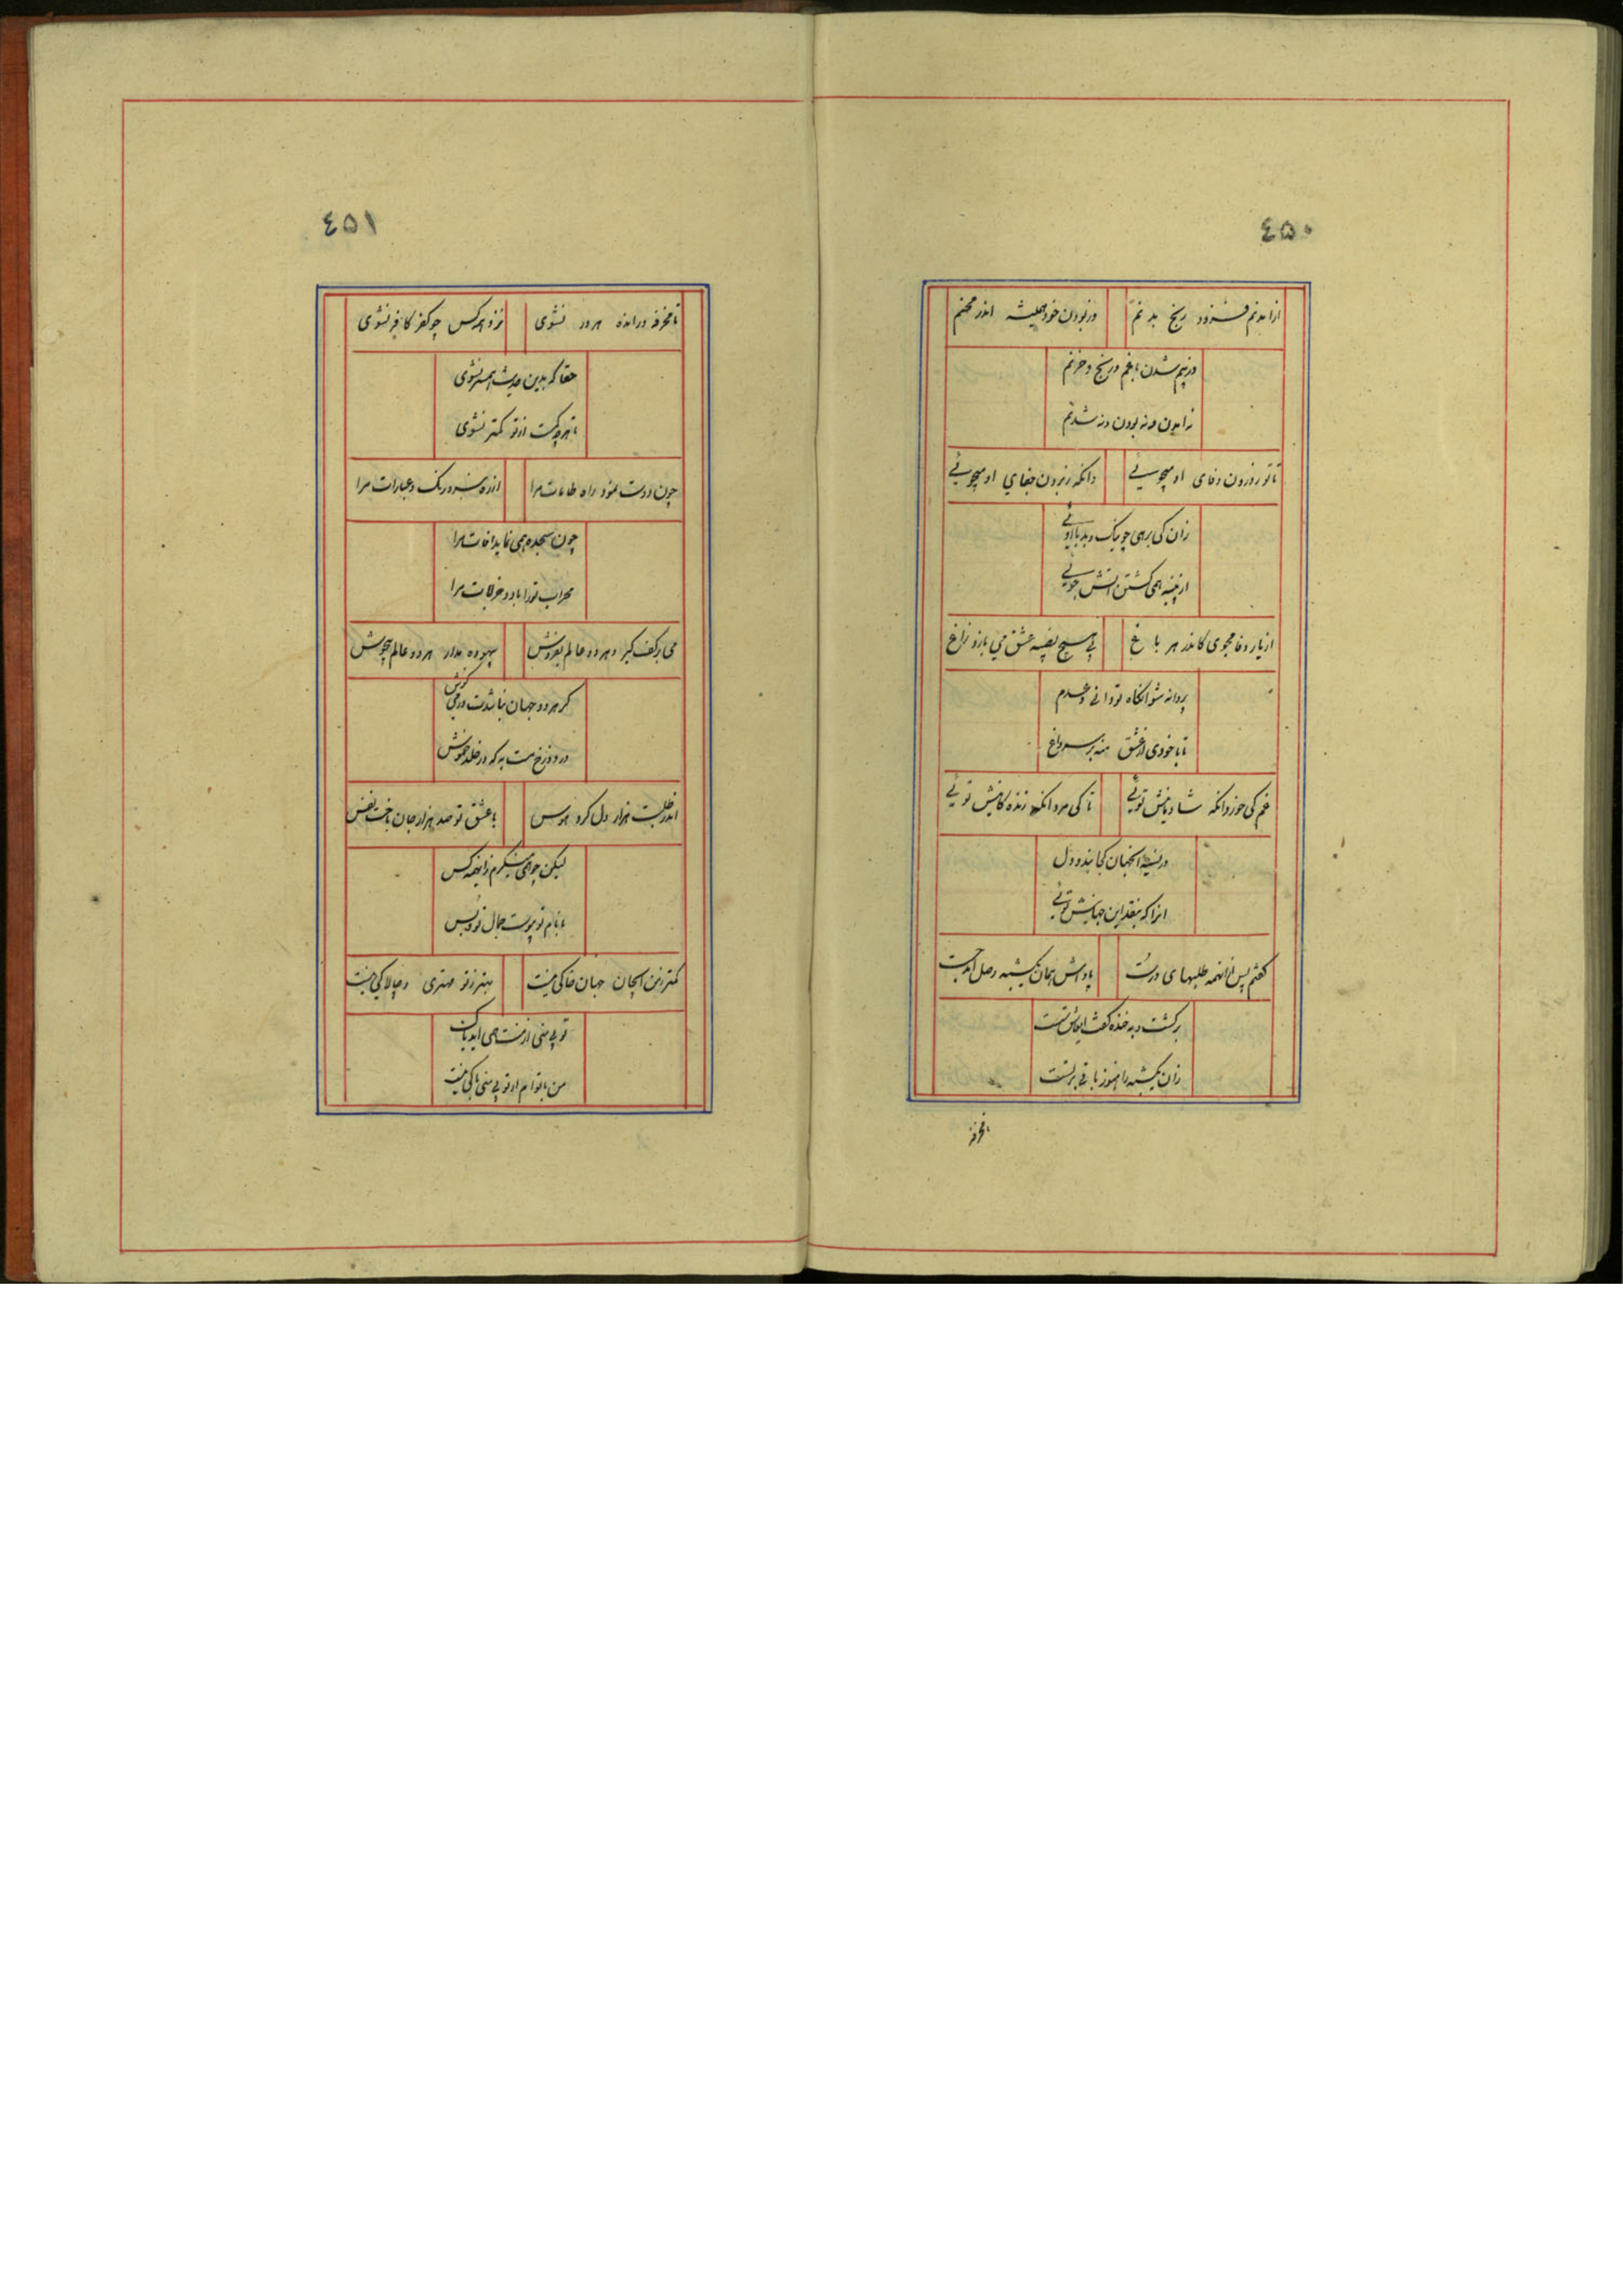 ٤٥٠
از آمدنم فزود رنج بدنم
در بودن خود همیشه اندر محنم
در بیم شدن با غم و رنج و حزنم
نه آمدن و نه بودن و نه شدنم
تا تو ز درون وفای او میجوئی
وانگه ز برون جفای او میجوئی
زان کی برهی چو نیک و بد با اوئی
از پنبه همی کشتن آتش جوئی
از یار وفا مجوی کاندر هر باغ
بی هیچ نصیبه عشق می بازد زاغ
پروانه شو آنگاه تو دانی و عدم
تا با خودی از عشق منه بر سر داغ
غم کی خورد آنکه شادمانیش توئی
تا کی مرد آنکه زندگانیش توئی
در نسیهٔ آنجهان کجا بندد دل
آنرا که بنقد این جهانیش توئی
گفتم پس ازینهمه طلبهای درست
پاداش همان یکشبه وصل آمد جست
برگشت و به خنده گفت ای عاشق سست
زان یکشبه را هنوز باقی بر تست
تا مخرقه
٤٥١
تا مخرقه و رانده هر در نشوی
نزد همه کس چو کفر کافر نشوی
حقا که بدین حدیث همسر نشوی
تا هرچه کمست ازو تو کمتر نشوی
چون دوست نمود راه طامات مرا
از ره نبرد رنگ و عبارات مرا
چون سجده همی نماید آفات مرا
محراب ترا باد و خرابات مرا
می بر کف گیر و هر دو عالم بفروش
بیهوده مدار هر دو عالم بجوش
گر هر دو جهان نباشدت در می گوش
در دوزخ مست به که در خلد خموش
اندر طلبت هزار دل کرد هوس
با عشق تو صد هزار جان باخت نفس
لیکن چو همی مینگرم زینهمه کس
با نام تو پیوست جمال تو و بس
کمتر ز من ایجان جهان خاکی نیست
بهتر ز تو مهتری و چالاکی نیست
تو بی منی از منت همی آید باک
من با توام ار تو بی منی باکی نیست